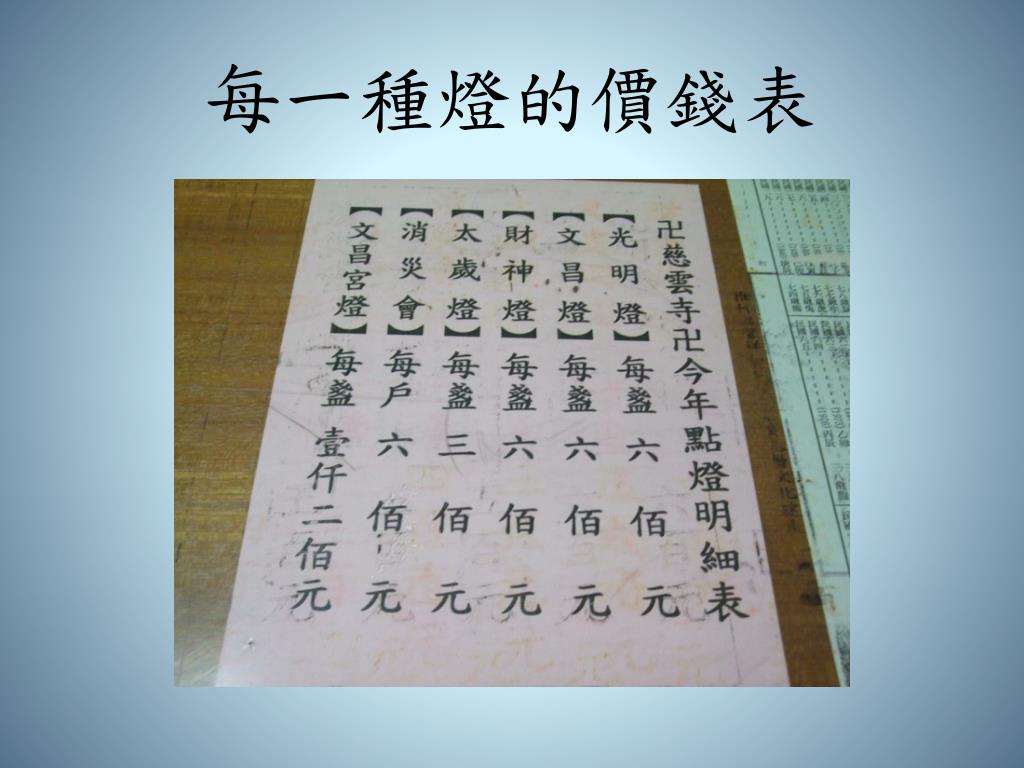 每一種燈的價錢表
卍慈雲寺卍今年點燈明細表
【光明燈】每盞六佰元
【文昌燈】每盞六佰元
【財神燈】每盞六佰元
【太歲燈】每盞三佰元
【消災會】每戶六佰元
【文昌宮燈】每盞壹仟二佰元